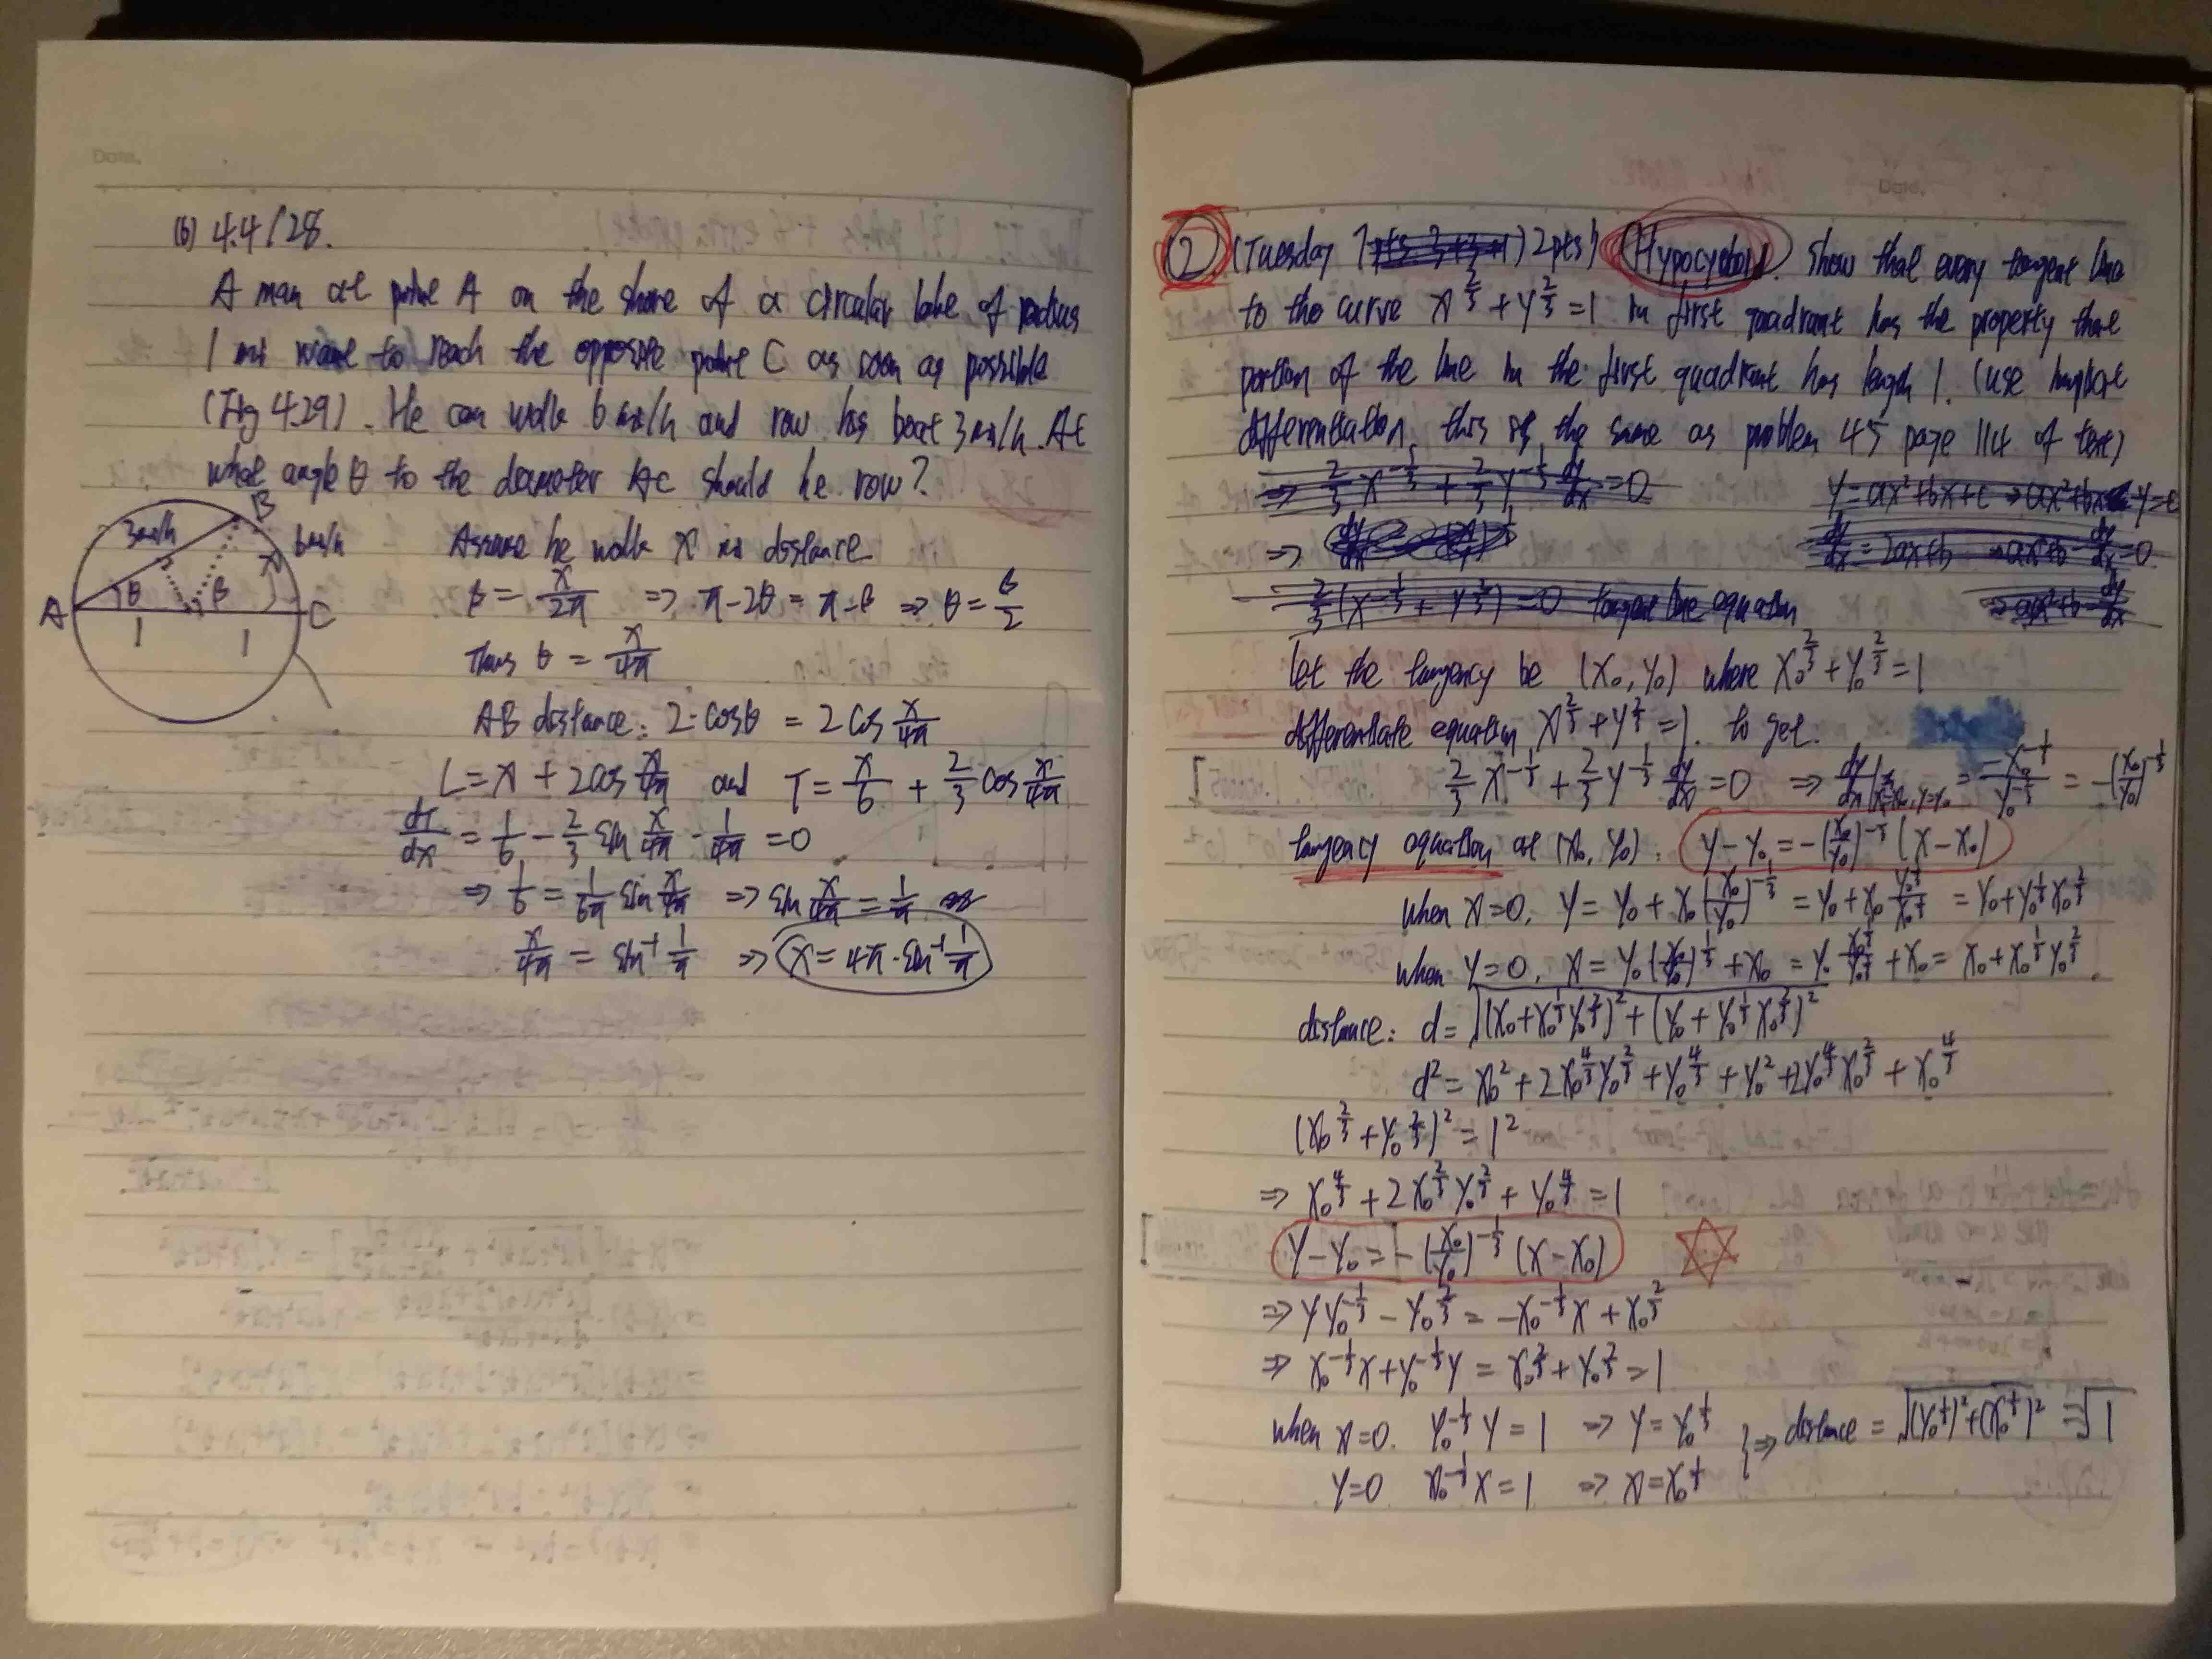 Date.
(b) 4.4/28.
A man at point A on the shore of a circular lake of radius
1 mi want to reach the opposite point C as soon as possible
(Fig 4.29). He can walk 6 mi/h and row his boat 3 mi/h. At
what angle θ to the diameter AC should he row?
B
3mi/h
6mi/h
x
A
θ
β
C
1
1
Assume he walk x mi distance
β = x/2π ⇒ π-2θ = π-β ⇒ θ = β/2
Thus θ = x/4π
AB distance: 2·cosθ = 2cos x/4π
L = x + 2cos x/4π and T = x/6 + 2/3 cos x/4π
dT/dx = 1/6 - 2/3 sin x/4π · 1/4π = 0
⇒ 1/6 = 1/6π sin x/4π ⇒ sin x/4π = 1/π
x/4π = sin⁻¹ 1/π ⇒ x = 4π·sin⁻¹ 1/π
Date.
② (Tuesday 2pts) (Hypocycloid). Show that every tangent line
to the curve x^(2/3) + y^(2/3) = 1 in first quadrant has the property that
portion of the line in the first quadrant has length 1. (use implicit
differentiation, this is the same as problem 45 page 114 of text)
⇒ 2/3 x^(-1/3) + 2/3 y^(-1/3) dy/dx = 0
⇒
tangent line equation
let the tangency be (x₀, y₀) where x₀^(2/3) + y₀^(2/3) = 1
differentiate equation x^(2/3) + y^(2/3) = 1. to get.
2/3 x^(-1/3) + 2/3 y^(-1/3) dy/dx = 0 ⇒ dy/dx |x=x₀, y=y₀ = -x₀^(-1/3)/y₀^(-1/3) = -(x₀/y₀)^(-1/3)
tangency equation at (x₀, y₀): y-y₀ = -(x₀/y₀)^(-1/3) (x-x₀)
when x=0, y = y₀ + x₀(x₀/y₀)^(-1/3) = y₀ + x₀ y₀^(1/3)/x₀^(1/3) = y₀ + y₀^(1/3) x₀^(2/3)
when y=0, x = y₀(x₀/y₀)^(1/3) + x₀ = y₀ x₀^(1/3)/y₀^(1/3) + x₀ = x₀ + x₀^(1/3) y₀^(2/3)
distance: d = √((x₀+x₀^(1/3)y₀^(2/3))² + (y₀+y₀^(1/3)x₀^(2/3))²)
d² = x₀² + 2x₀^(4/3)y₀^(2/3) + y₀^(4/3) + y₀² + 2y₀^(4/3)x₀^(2/3) + x₀^(4/3)
(x₀^(2/3) + y₀^(2/3))² = 1²
⇒ x₀^(4/3) + 2x₀^(2/3)y₀^(2/3) + y₀^(4/3) = 1
y-y₀ = -(x₀/y₀)^(-1/3) (x-x₀)
⇒ y y₀^(-1/3) - y₀^(2/3) = -x₀^(-1/3)x + x₀^(2/3)
⇒ x₀^(-1/3)x + y₀^(-1/3)y = x₀^(2/3) + y₀^(2/3) = 1
when x=0. y₀^(-1/3) y = 1 ⇒ y = y₀^(1/3) } ⇒ distance = √((y₀^(1/3))² + (x₀^(1/3))²) = √1
y=0 x₀^(-1/3) x = 1 ⇒ x = x₀^(1/3)